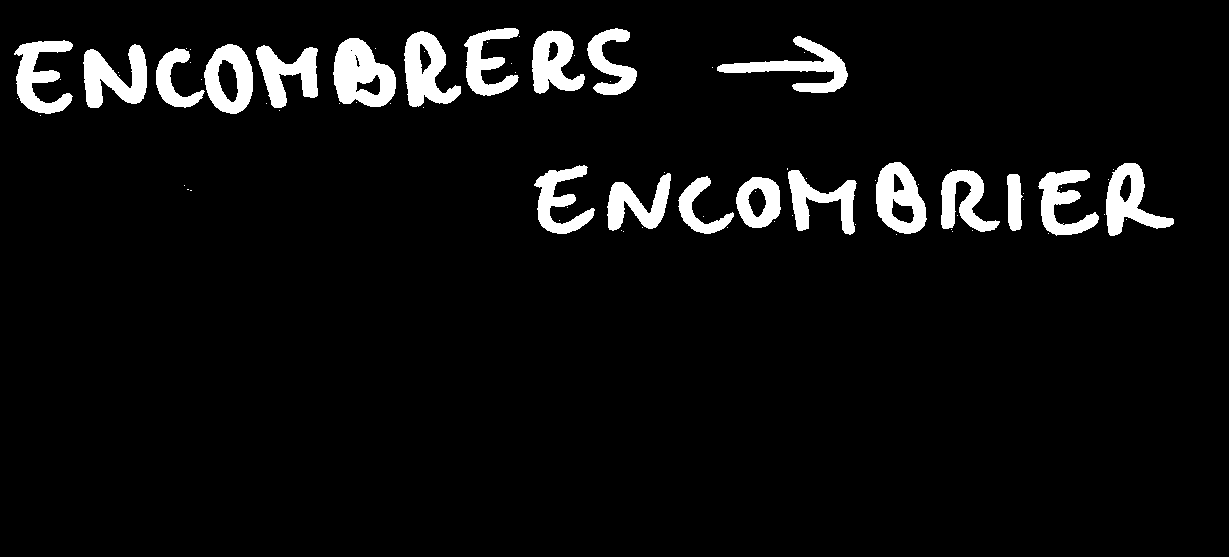 ENCOMBRERS →
ENCOMBRIER